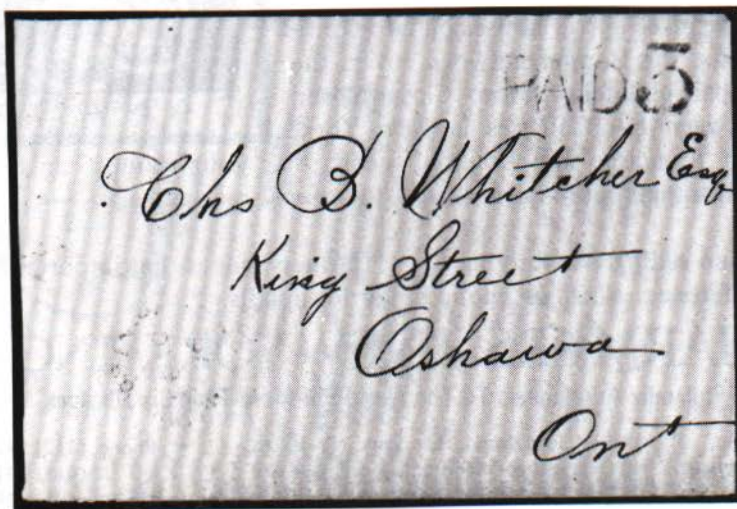 PAID 3
Chs B. Whitcher Esq
King Street
Oshawa
Ont